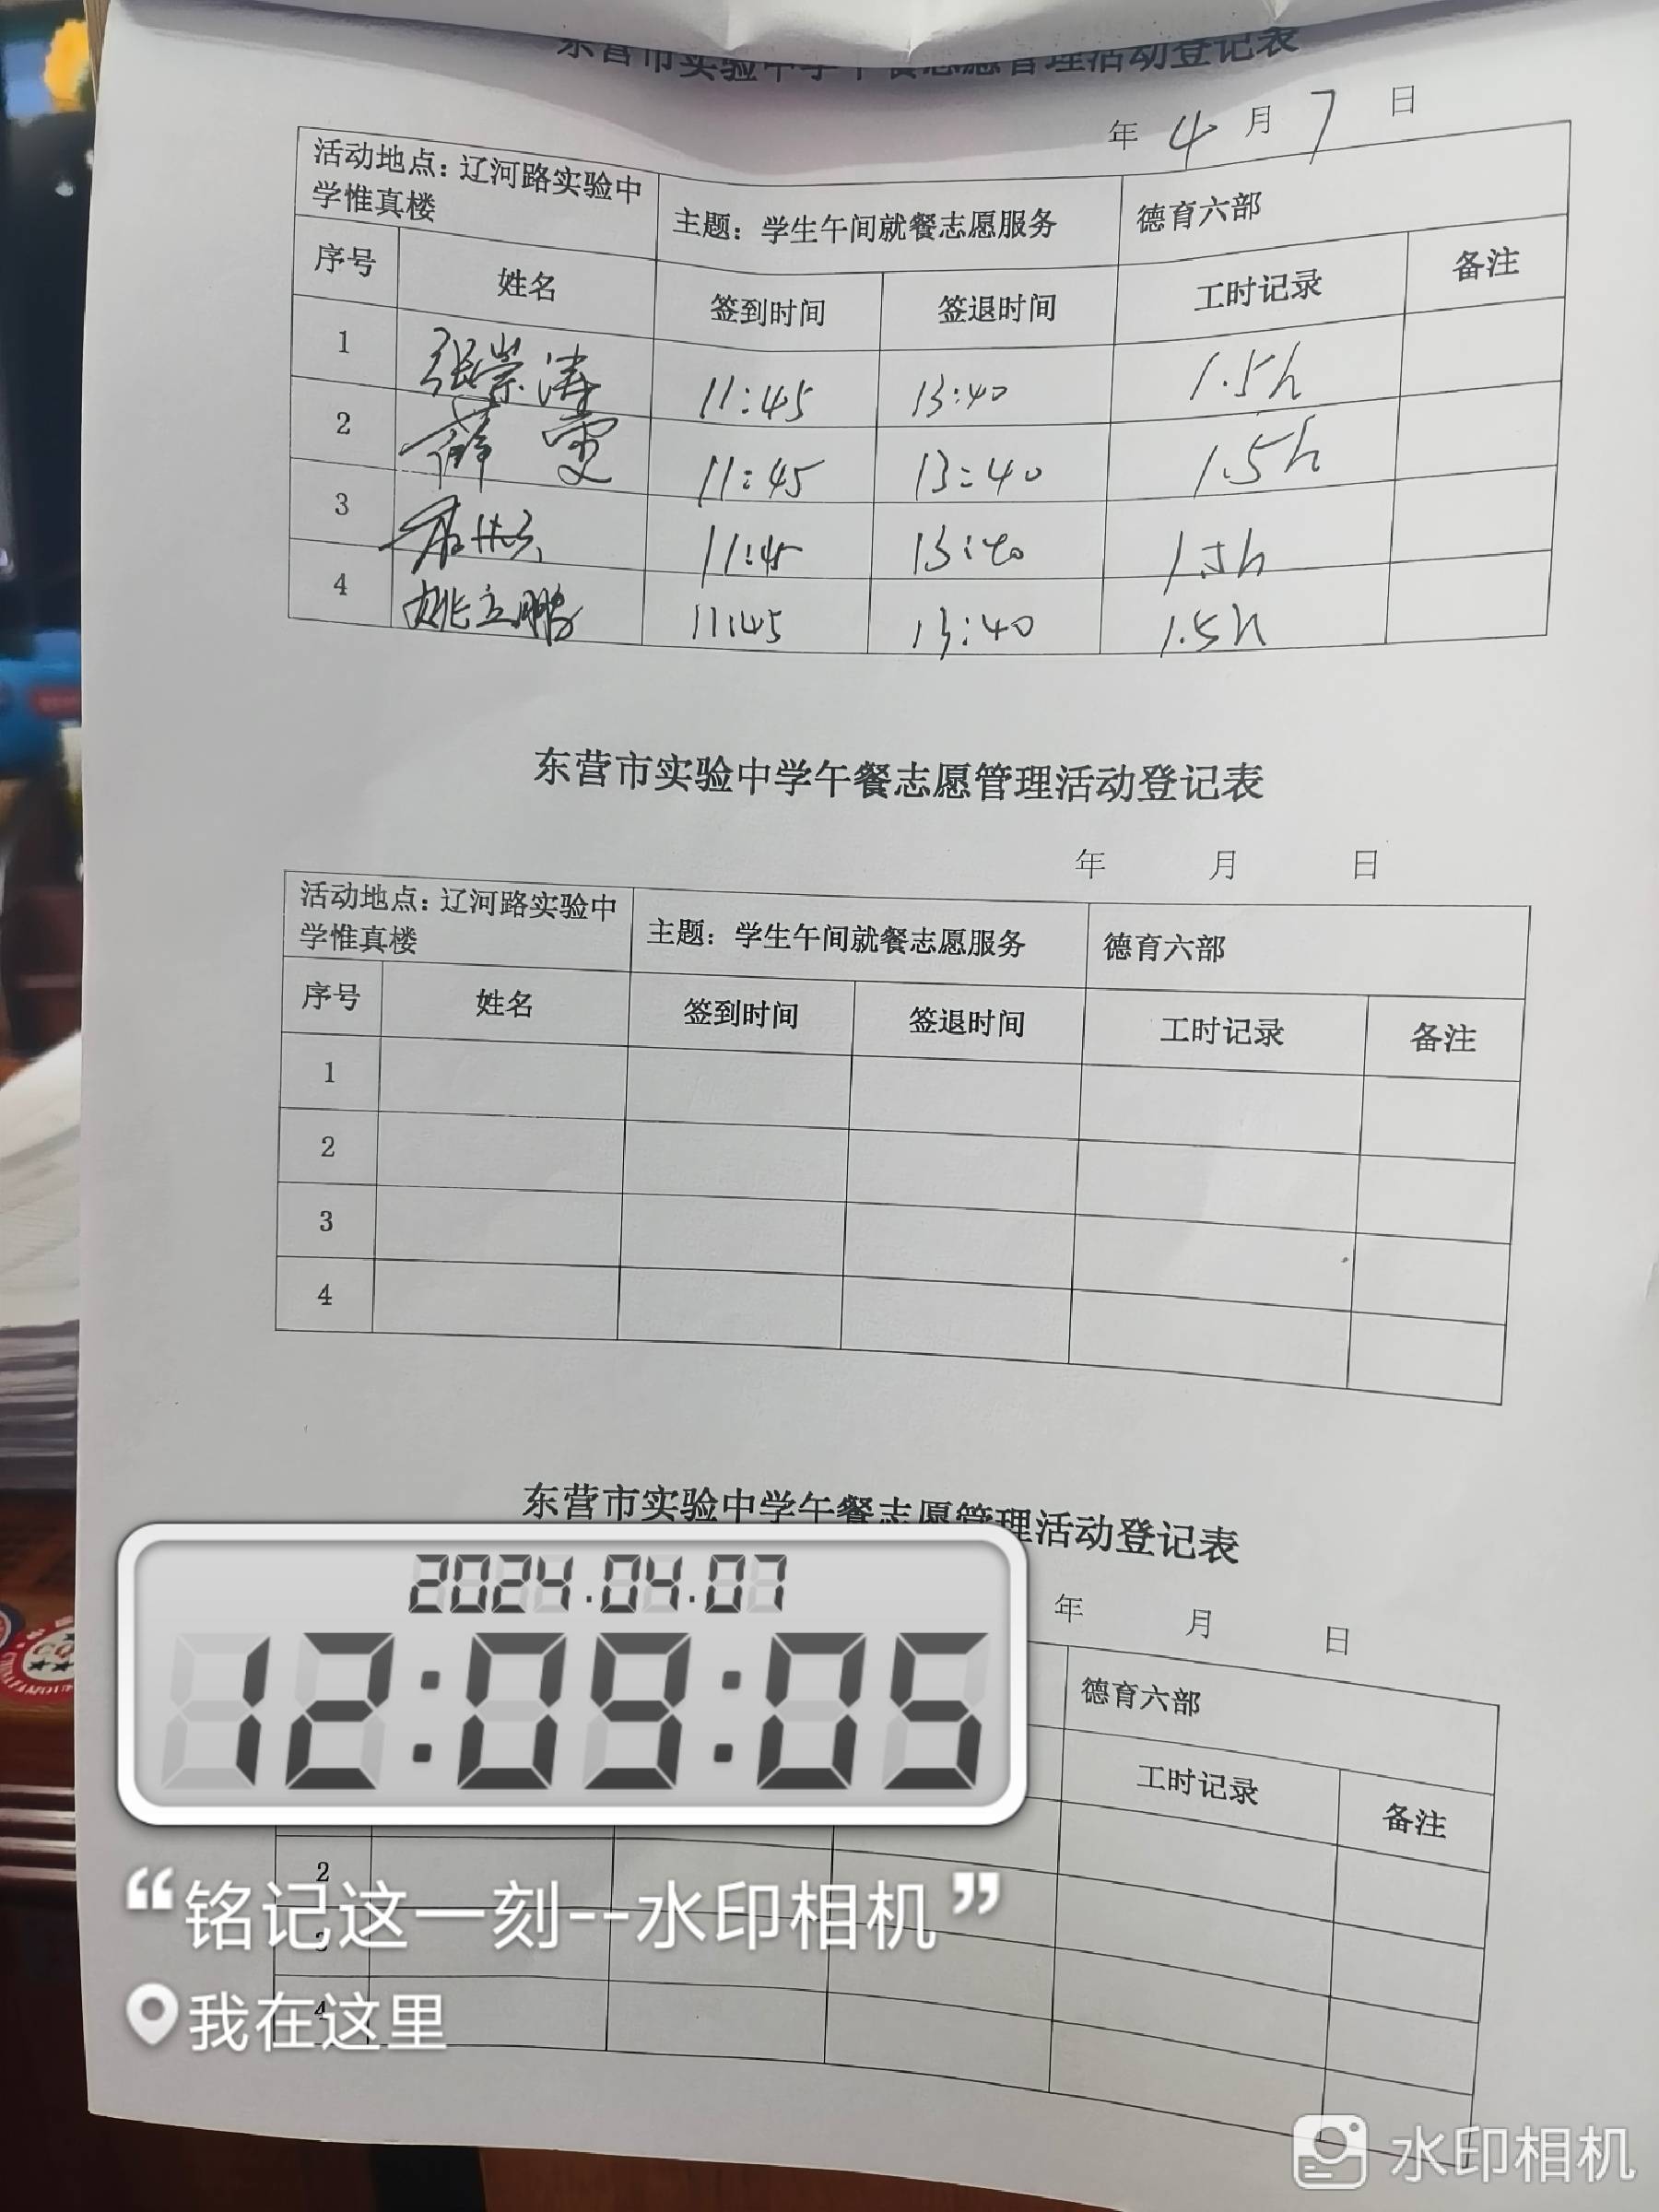 东营市实验中学午餐志愿管理活动登记表
年 4 月 7 日
活动地点：辽河路实验中学惟真楼 主题：学生午间就餐志愿服务 德育六部
序号 姓名 签到时间 签退时间 工时记录 备注
1 张崇涛 11:45 13:40 1.5h
2 薛雯 11:45 13:40 1.5h
3 11:45 13:40 1.5h
4 姚立鹏 11:45 13:40 1.5h
东营市实验中学午餐志愿管理活动登记表
年 月 日
活动地点：辽河路实验中学惟真楼 主题：学生午间就餐志愿服务 德育六部
序号 姓名 签到时间 签退时间 工时记录 备注
1
2
3
4
东营市实验中学午餐志愿管理活动登记表
年 月 日
德育六部
工时记录 备注
2
3
4
2024.04.07
12:09:05
“铭记这一刻--水印相机”
我在这里
水印相机